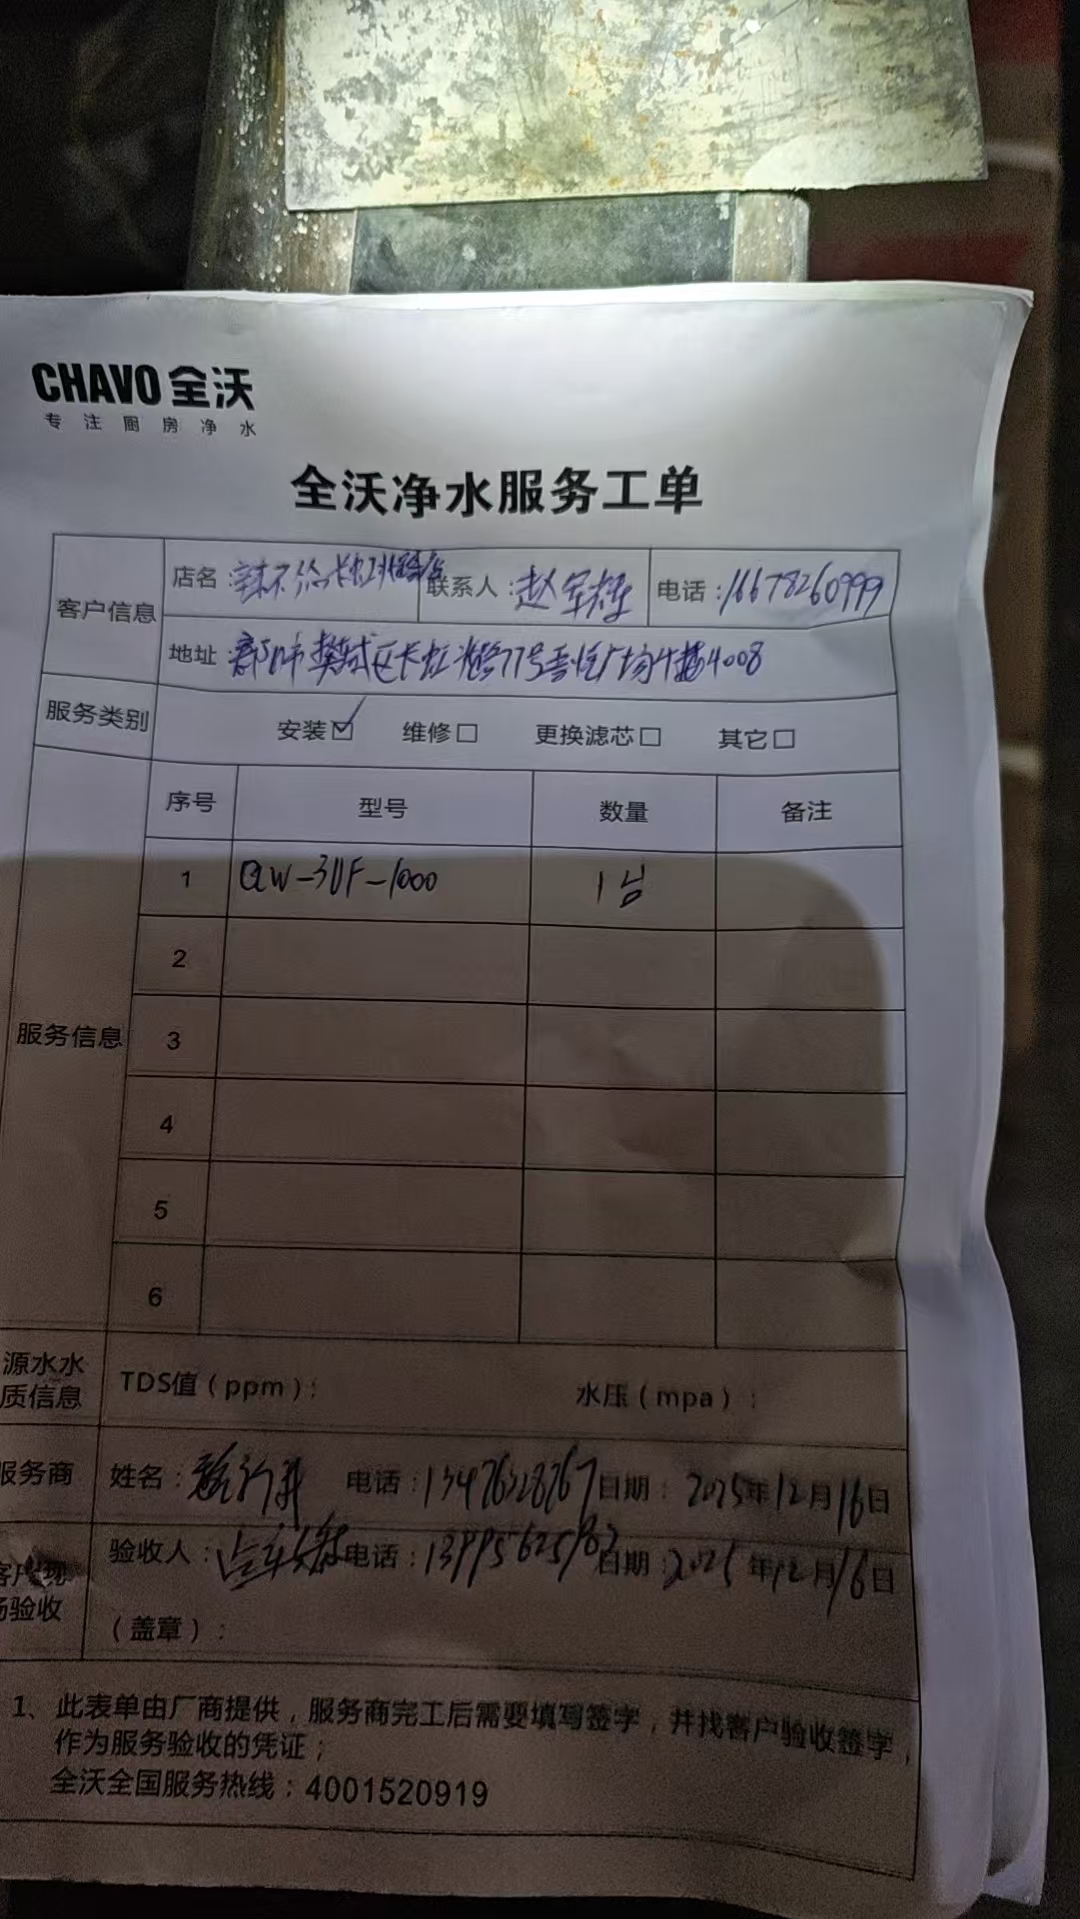 CHAVO 全沃
专注厨房净水
全沃净水服务工单
客户信息 店名: 联系人: 赵军 电话: 16678260999
地址: 樊城区长虹北路77号吾悦广场4楼4008
服务类别 安装☑ 维修□ 更换滤芯□ 其它□
服务信息 序号 型号 数量 备注
1 QW-3UF-1000 1台
2
3
4
5
6
源水水质信息 TDS值(ppm): 水压(mpa):
服务商 姓名: 电话: 13476328767 日期: 2025年12月16日
客户现场验收 验收人: 电话: 日期: 2025年12月16日
(盖章):
1、此表单由厂商提供,服务商完工后需要填写签字,并找客户验收签字,
作为服务验收的凭证;
全沃全国服务热线:4001520919